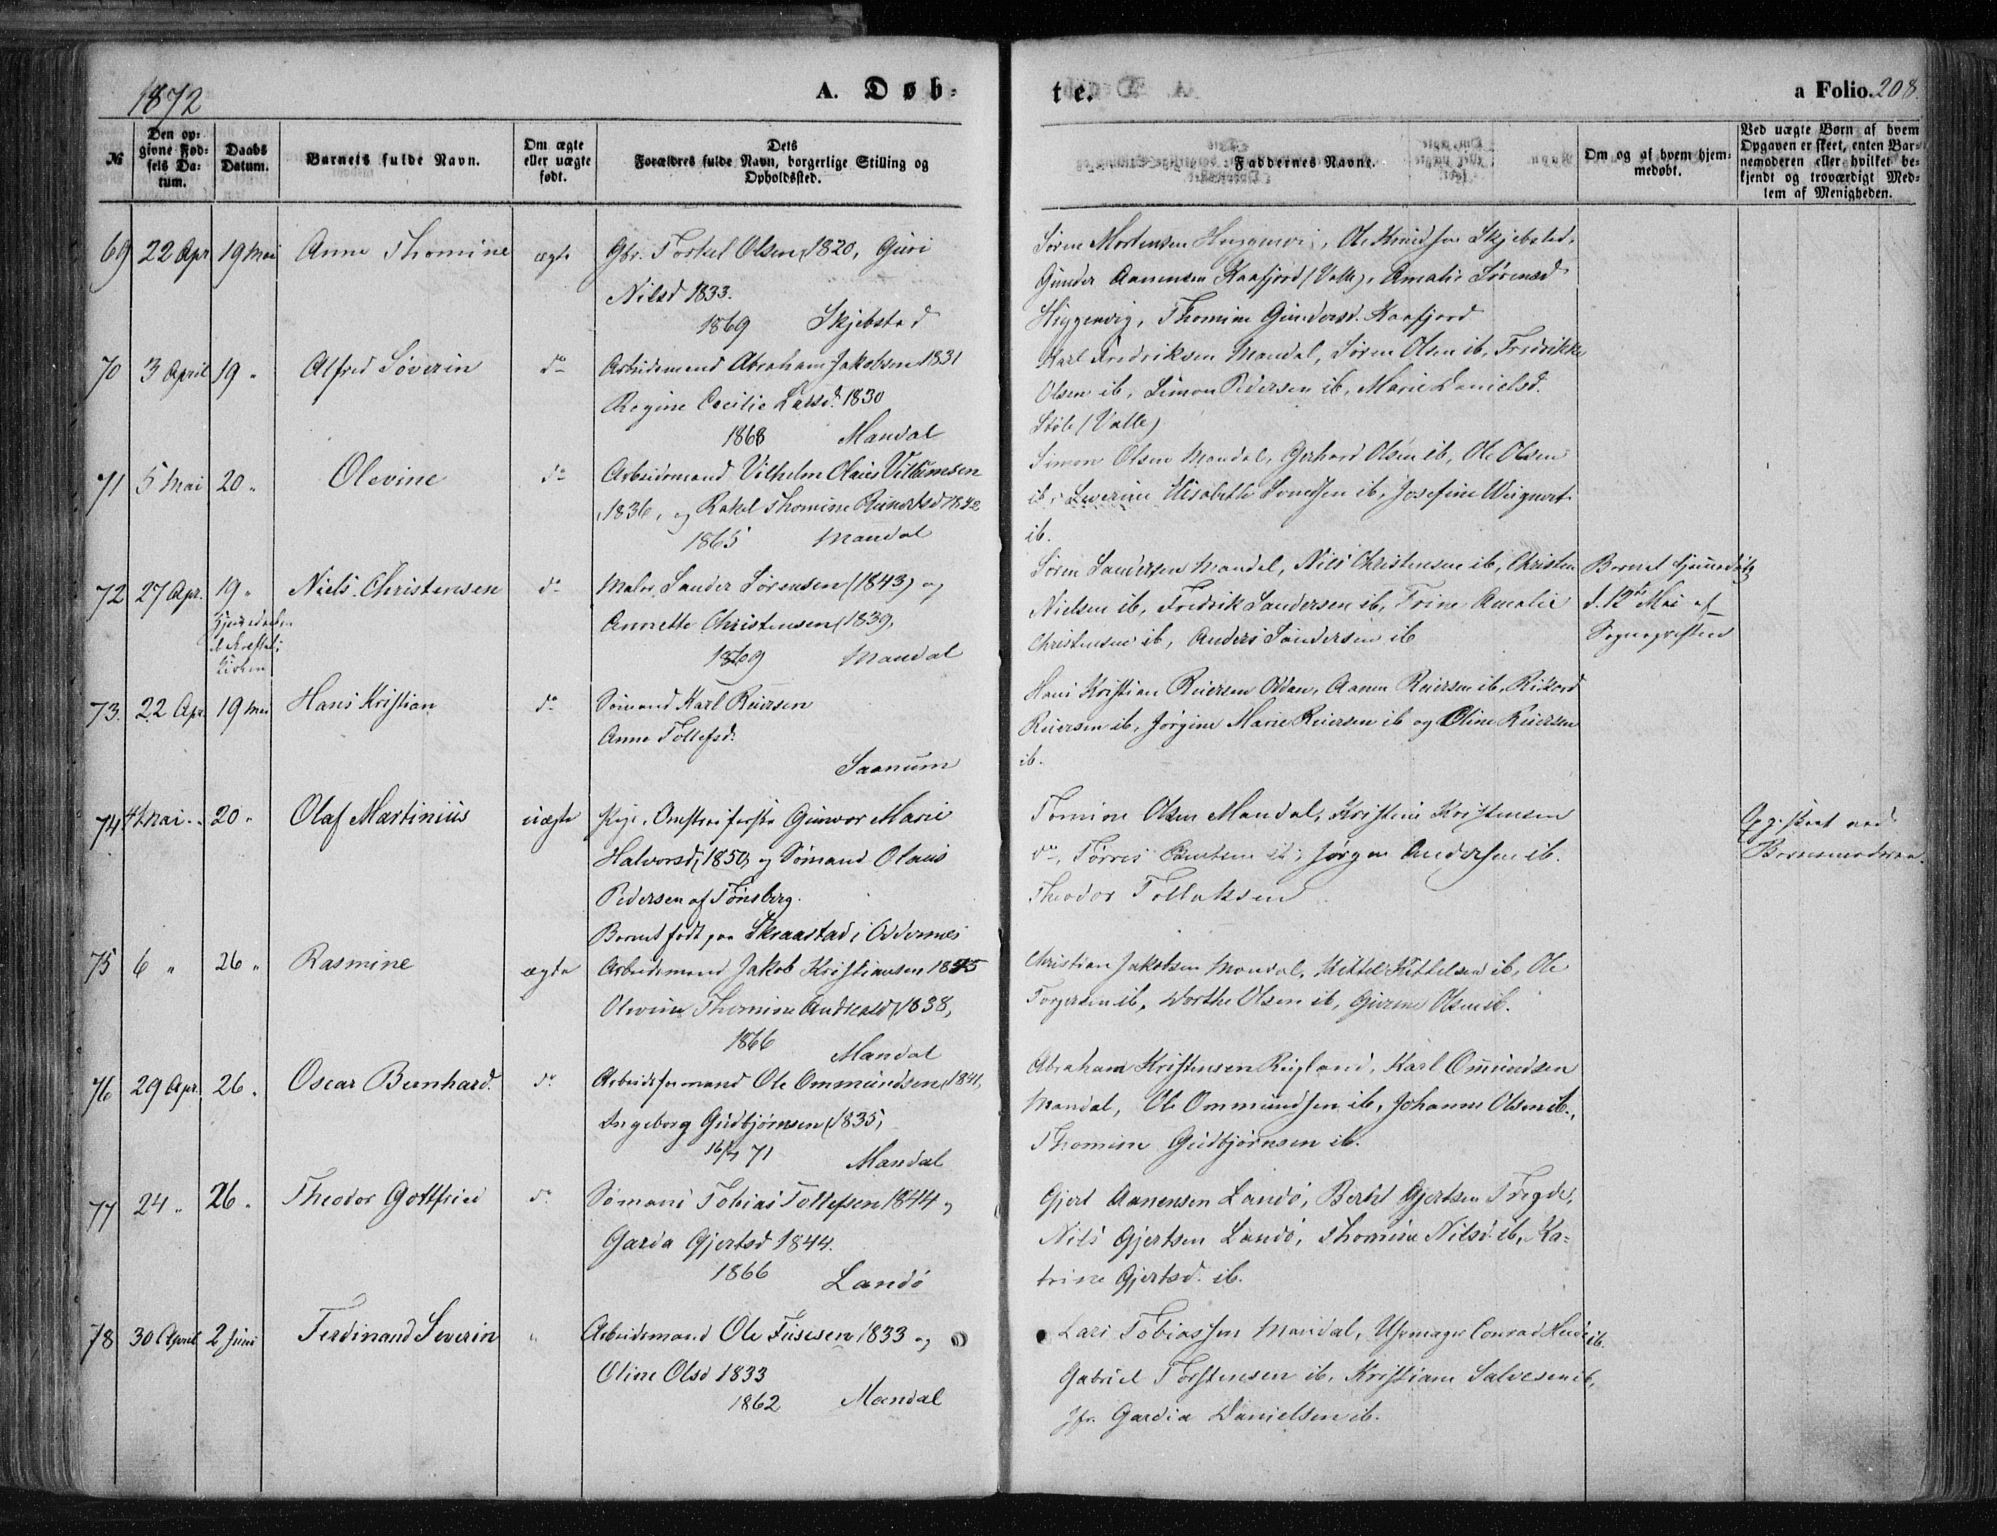 1872
A. Døb-
te.
a Folio. 208.
№
Den op-
givne Fød-
sels Da-
tum.
Daabs
Datum.
Barnets fulde Navn.
Om ægte
eller uægte
født.
Dets
Forældres fulde Navn, borgerlige Stilling og
Opholdssted.
Faddernes Navne.
Om og af hvem hjem-
medøbt.
Ved uægte Børn af hvem
Opgaven er skeet, enten Bar-
nemoderen eller hvilket be-
kjendt og troværdigt Med-
lem af Menigheden.
69 22 Apr 19 Mai Anne Thomine ægte Gbr. Torkel Olsen 1820, Guri
Nilsd 1833.
1869 Skjebstad
Søren Mortensen, Ole Knudsen Skjebstad,
Gunder Aanensen Kaafjord (Valle), Amalie Sørensd
Higgenvig, Thomine Gundersd. Kaafjord
70 3 April 19 " Alfred Søverin do Arbeidsmand Abraham Jakobsen 1831
Regine Cecilie Larsd. 1830
1868 Mandal
Karl Fredriksen Mandal, Søren Olsen ib, Fredrikke
Olsen ib, Simon Pedersen ib, Marie Danielsd.
Støle (Valle)
71 5 Mai 20 " Olevine do Arbeidsmand Vilhelm Olaus Villumsen
1836, og Rakel Thomine Reinertsd 1842
1865 Mandal
Simon Olsen Mandal, Gerhard Olsen ib, Ole Olsen
ib, Severine Elisabeth ib, Josefine
ib.
72 27 Apr. 19 " Niels Christensen do Maler Sander Sørensen (1843) og
Annette Christensen (1839,
1869 Mandal
Hjemmedaaben
st.
Kirken
Søren Sandersen Mandal, Niels Christensen ib, Christen
Nielsen ib, Fredrik Sandersen ib, Trine Amalie
Christensen ib, Anders Sandersen ib
Barnet hjemmedøbt
d. 12te Mai af
Sognepresten
73. 22 Apr. 19 Mai Hans Kristian do Sømand Karl Reiersen
Anne Tollefsd.
Saanum
Hans Kristian Reiersen Odden, Aanen Reiersen ib, Rikard
Reiersen ib, Jørgine Marie Reiersen ib og Oline Reiersen
ib.
74 4 Mai 20 " Olaf Martinius uægte Pige Gunvor Marie
Halvorsd, 1850, og Sømand Olaus
Pedersen af Tønsberg.
Barnet født paa Skraastad i Oddernes
Tomine Olsen Mandal, Kristine Kristensen
do, Tørres ib, Jørgen Andersen ib.
Theodor Tollaksen
Opg. skeet ved
Barnemoderen.
75 6 " 26 " Rasmine ægte Arbeidsmand Jakob Kristiansen 1845
Olevine Thomine Andreasd (1838,
1866 Mandal
Christian Jakobsen Mandal, Kittel Kittelsen ib, Ole
Torgersen ib, Dorthe Olsen ib, Olsen ib.
76 29 Apr. 26 " Oscar Bernhard. do Arbeidsformand Ole Ommundsen, 1841,
Ingeborg Gudbjørnsen (1835,
16/4 71 Mandal
Abraham Kristensen Rugland, Karl Omundsen
Mandal, Ole Ommundsen ib, Johanne Olsen ib,
Thomine Gudbjørnsen ib.
77 24 " 26 " Theodor Gottfried do Sømand Tobias Tollefsen 1844 og
Garda Gjertsd 1844.
1866 Landø
Gjert Aanensen Landø, Bertel Gjertsen Tregde,
Nils Gjertsen Landø, Thomine Nilsd. ib, Ka-
trine Gjertsd. ib.
78 30 April 2 Juni Ferdinand Severin " Arbeidsmand Ole 1833 og
Oline Olsd 1833
1862 Mandal
Lars Tobiassen Mandal, Uhrmager Conrad ib.
Gabriel Torstensen ib, Kristiane Salvesen ib,
Jfr. Gardia Danielsen ib.